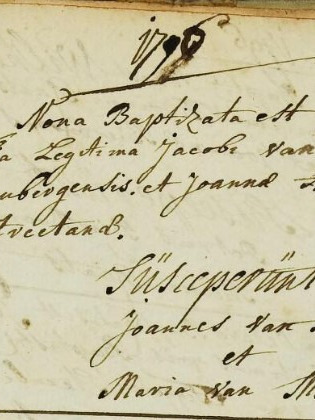 1796
Nona Baptizata est
Legitima Jacobi van
ubergensis. et Joannæ
treetanæ.
Süsceperünt
Joannes van
et
Maria van M